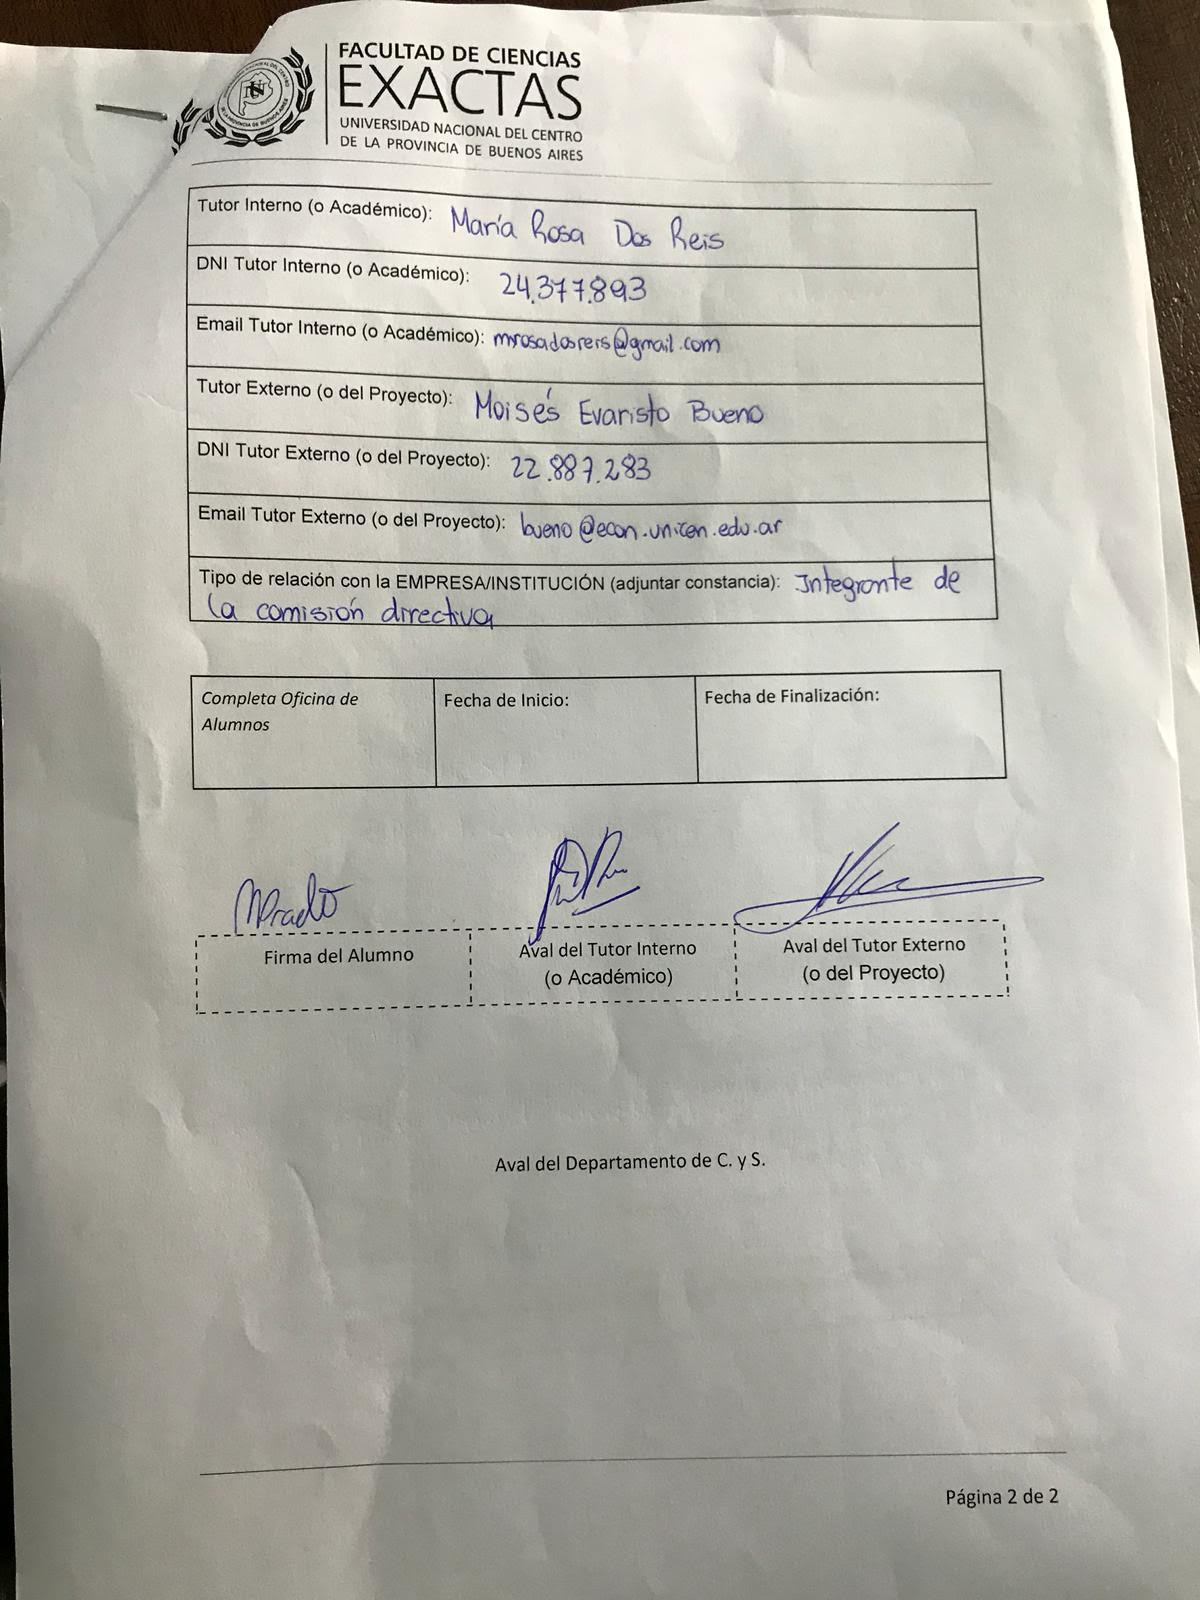 FACULTAD DE CIENCIAS
EXACTAS
UNIVERSIDAD NACIONAL DEL CENTRO
DE LA PROVINCIA DE BUENOS AIRES
Tutor Interno (o Académico): María Rosa Dos Reis
DNI Tutor Interno (o Académico): 24.377.893
Email Tutor Interno (o Académico): mrosadosreis@gmail.com
Tutor Externo (o del Proyecto): Moisés Evaristo Bueno
DNI Tutor Externo (o del Proyecto): 22.887.283
Email Tutor Externo (o del Proyecto): bueno@econ.unicen.edu.ar
Tipo de relación con la EMPRESA/INSTITUCIÓN (adjuntar constancia): Integrante de
la comisión directiva
Completa Oficina de
Alumnos
Fecha de Inicio:
Fecha de Finalización:
MPrado
Firma del Alumno
Aval del Tutor Interno
(o Académico)
Aval del Tutor Externo
(o del Proyecto)
Aval del Departamento de C. y S.
Página 2 de 2